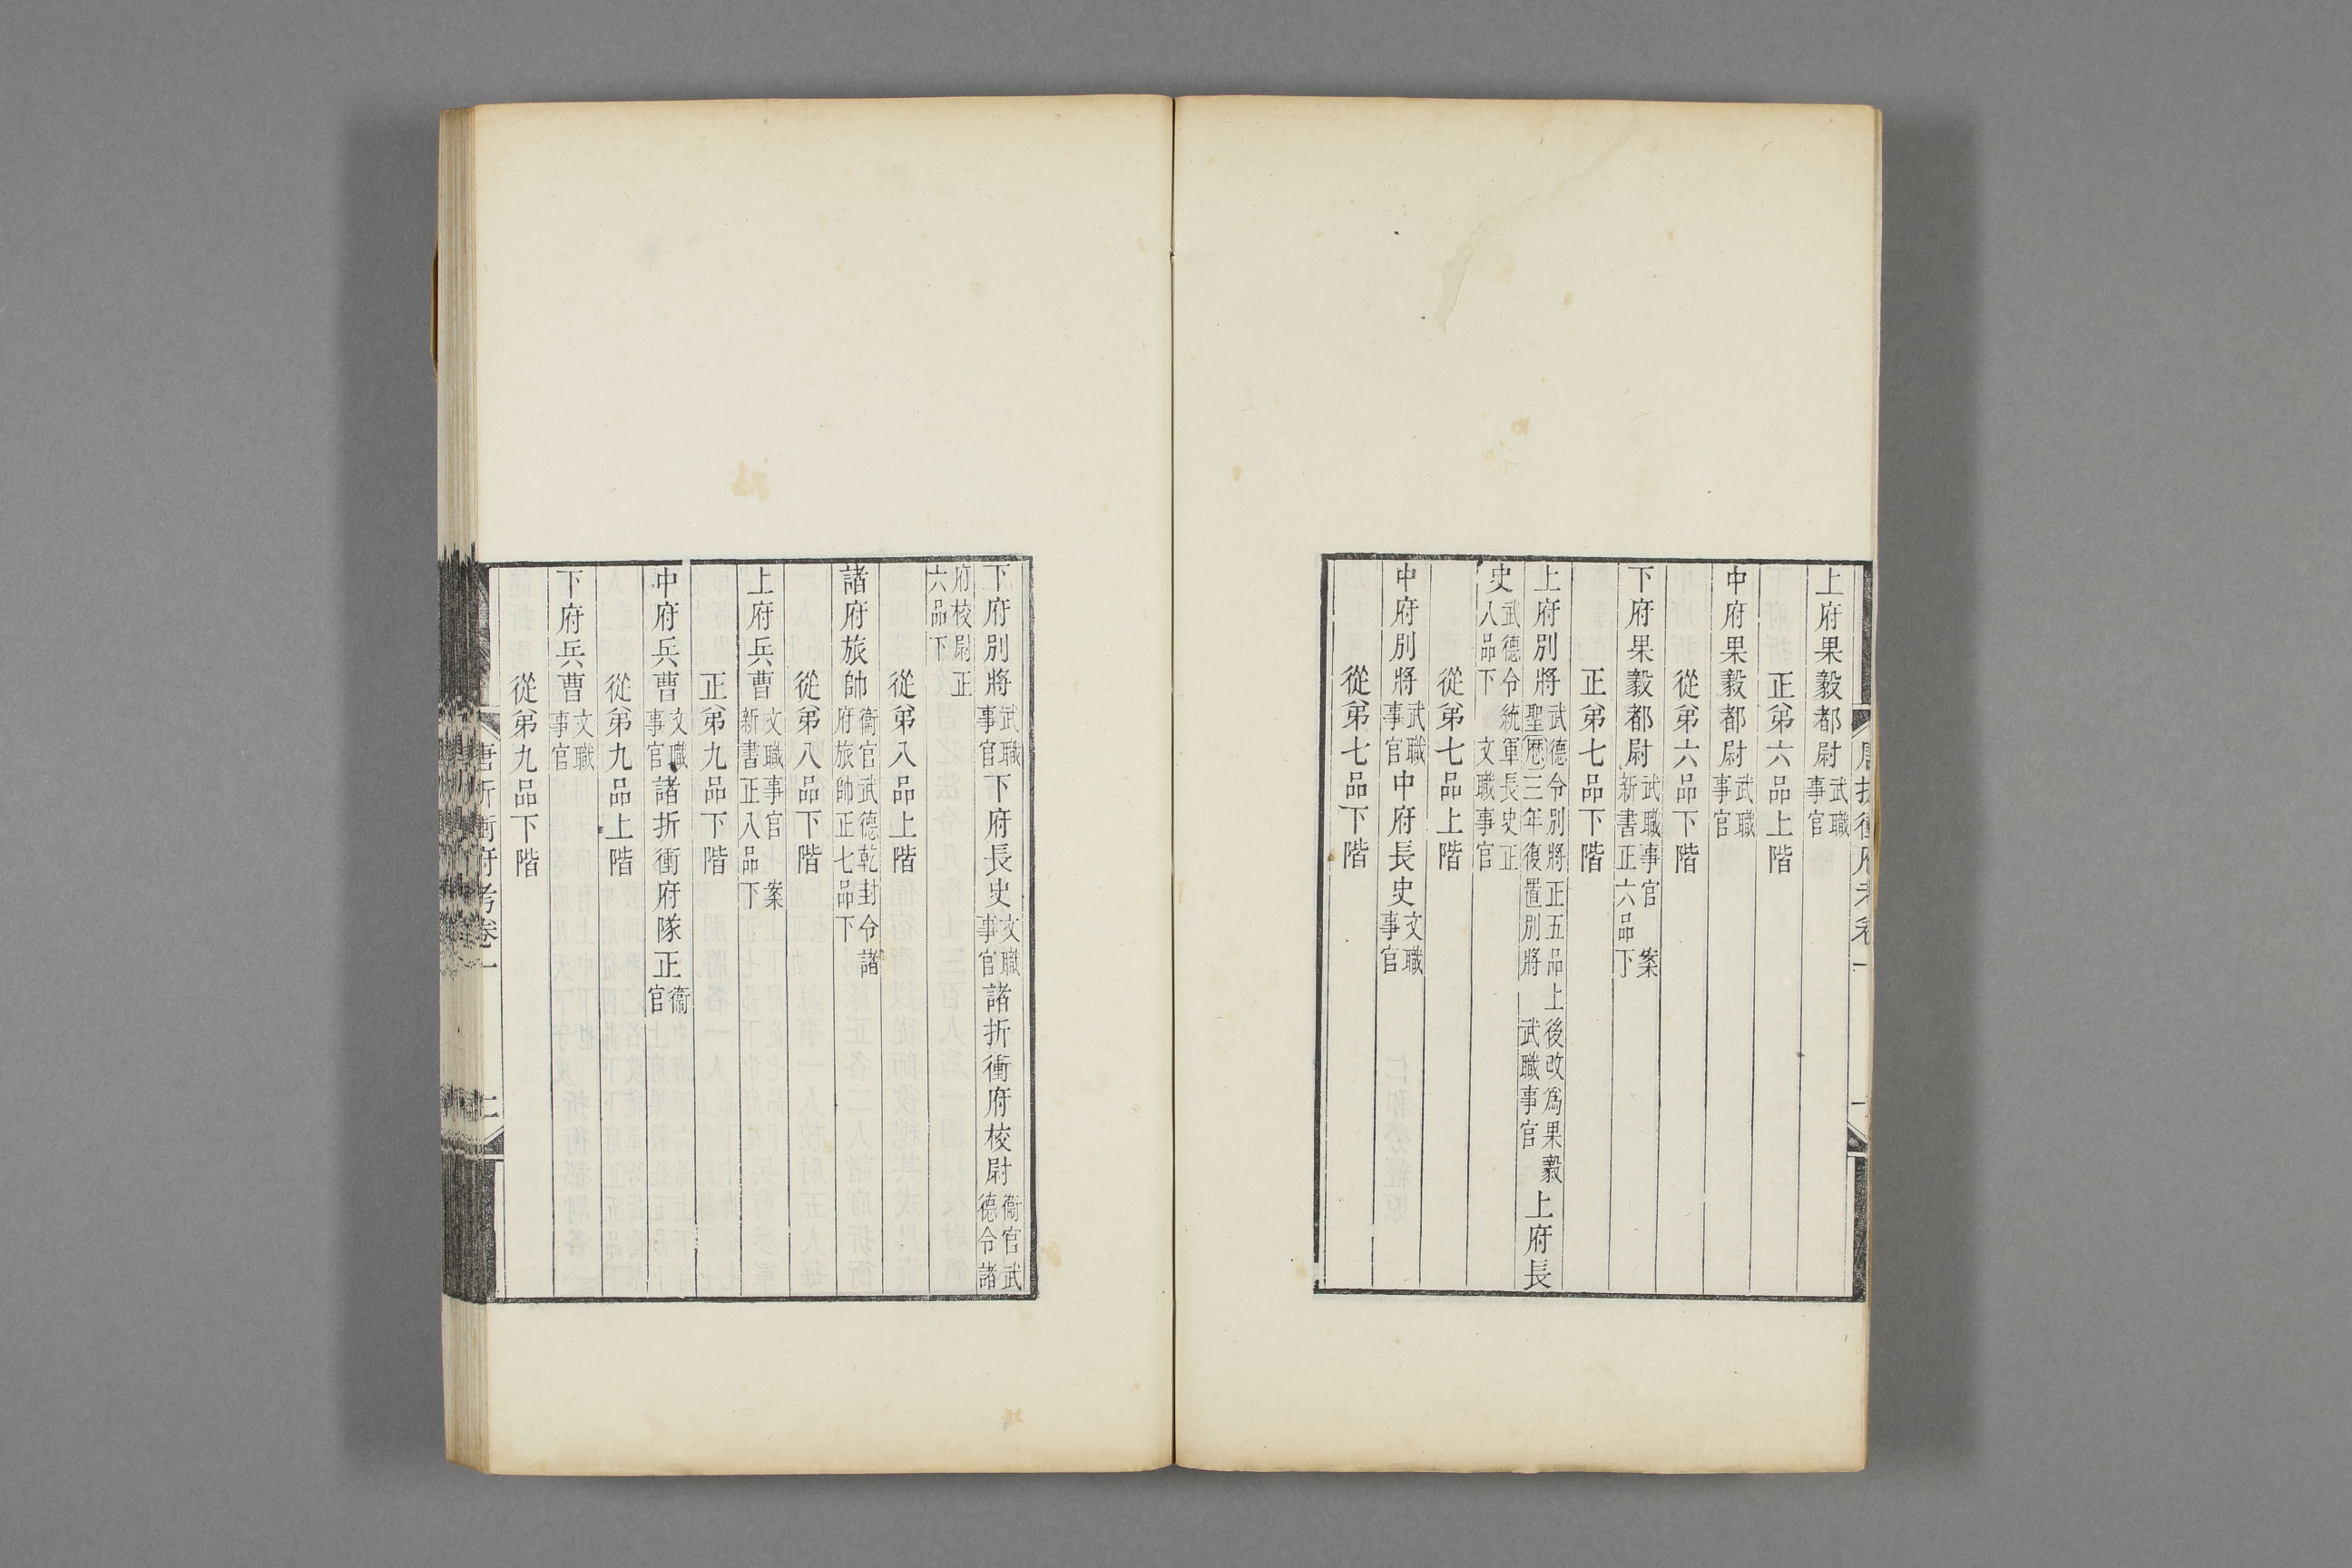 上府果毅都尉武職事官
正弟六品上階
中府果毅都尉武職事官
從弟六品下階
下府果毅都尉武職事官案新書正六品下
正弟七品下階
上府別將武德令別將正五品上後改爲果毅聖歷三年復置別將武職事官上府長
史武德令統軍長史正八品下文職事官
從弟七品上階
中府別將武職事官中府長史文職事官
從弟七品下階
下府別將武職事官下府長史文職事官諸折衝府校尉衞官武德令諸
府校尉正六品下
從弟八品上階
諸府旅帥衞官武德乾封令諸府旅帥正七品下
從弟八品下階
上府兵曹文職事官案新書正八品下
正弟九品下階
中府兵曹文職事官諸折衝府隊正衞官
從弟九品上階
下府兵曹文職事官
從弟九品下階
唐折衝府考卷一